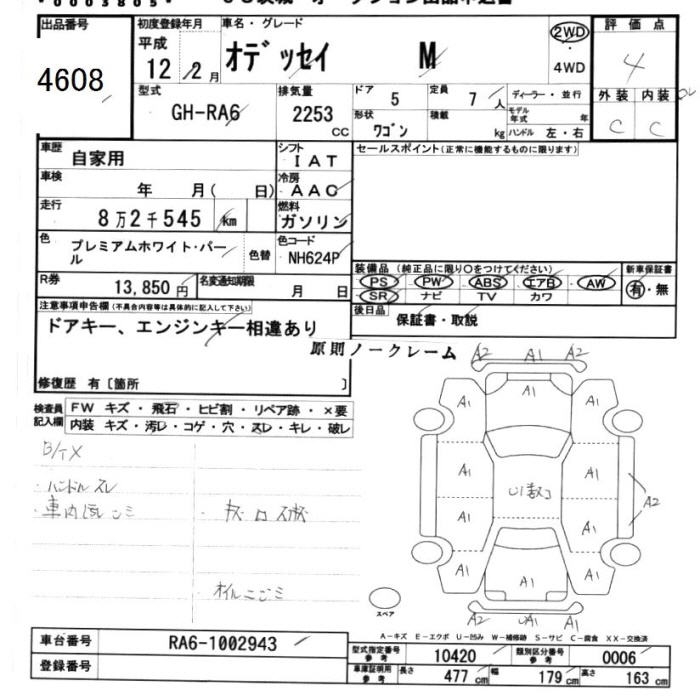 0003805
出品番号
4608
初度登録年月
平成
12 / 2月
車名・グレード
オデッセイ M
2WD
・
4WD
評価点
4
外装 内装
C C
型式
GH-RA6
排気量
2253
CC
ドア
5
定員
7 人
ディーラー・並行
形状
ワゴン
積載
kg
モデル年式 年
ハンドル 左・右
車歴
自家用
シフト
IAT
セールスポイント(正常に機能するものに限ります)
車検
年 月( 日)
冷房
AAC
走行
8万2千545 km
燃料
ガソリン
色
プレミアムホワイト・パール
色替
色コード
NH624P
装備品(純正品に限り〇をつけてください)
PS PW ABS エアB AW
SR ナビ TV カワ
新車保証書
有・無
R券
13,850円
名変通知期限
月 日
後日品
保証書・取説
注意事項申告欄(不具合内容等は具体的に記入して下さい)
ドアキー、エンジンキー相違あり
原則ノークレーム
修復歴 有〔箇所 〕
検査員記入欄
FW キズ・飛石・ヒビ割・リペア跡・×要
内装 キズ・汚レ・コゲ・穴・スレ・キレ・破レ
・ハンドルスレ
A2 A1 A2
A1 A1 A1
A1 A1
A1 A1
A2
A1 A1 A1
A2 A2
スペア
A-キズ E-エクボ U-凹み W-補修跡 S-サビ C-腐食 XX-交換済
車台番号
RA6-1002943
登録番号
型式指定番号
参考
10420
類別区分番号
参考
0006
車庫証明用
参考
長さ
477 cm
幅
179 cm
高さ
163 cm